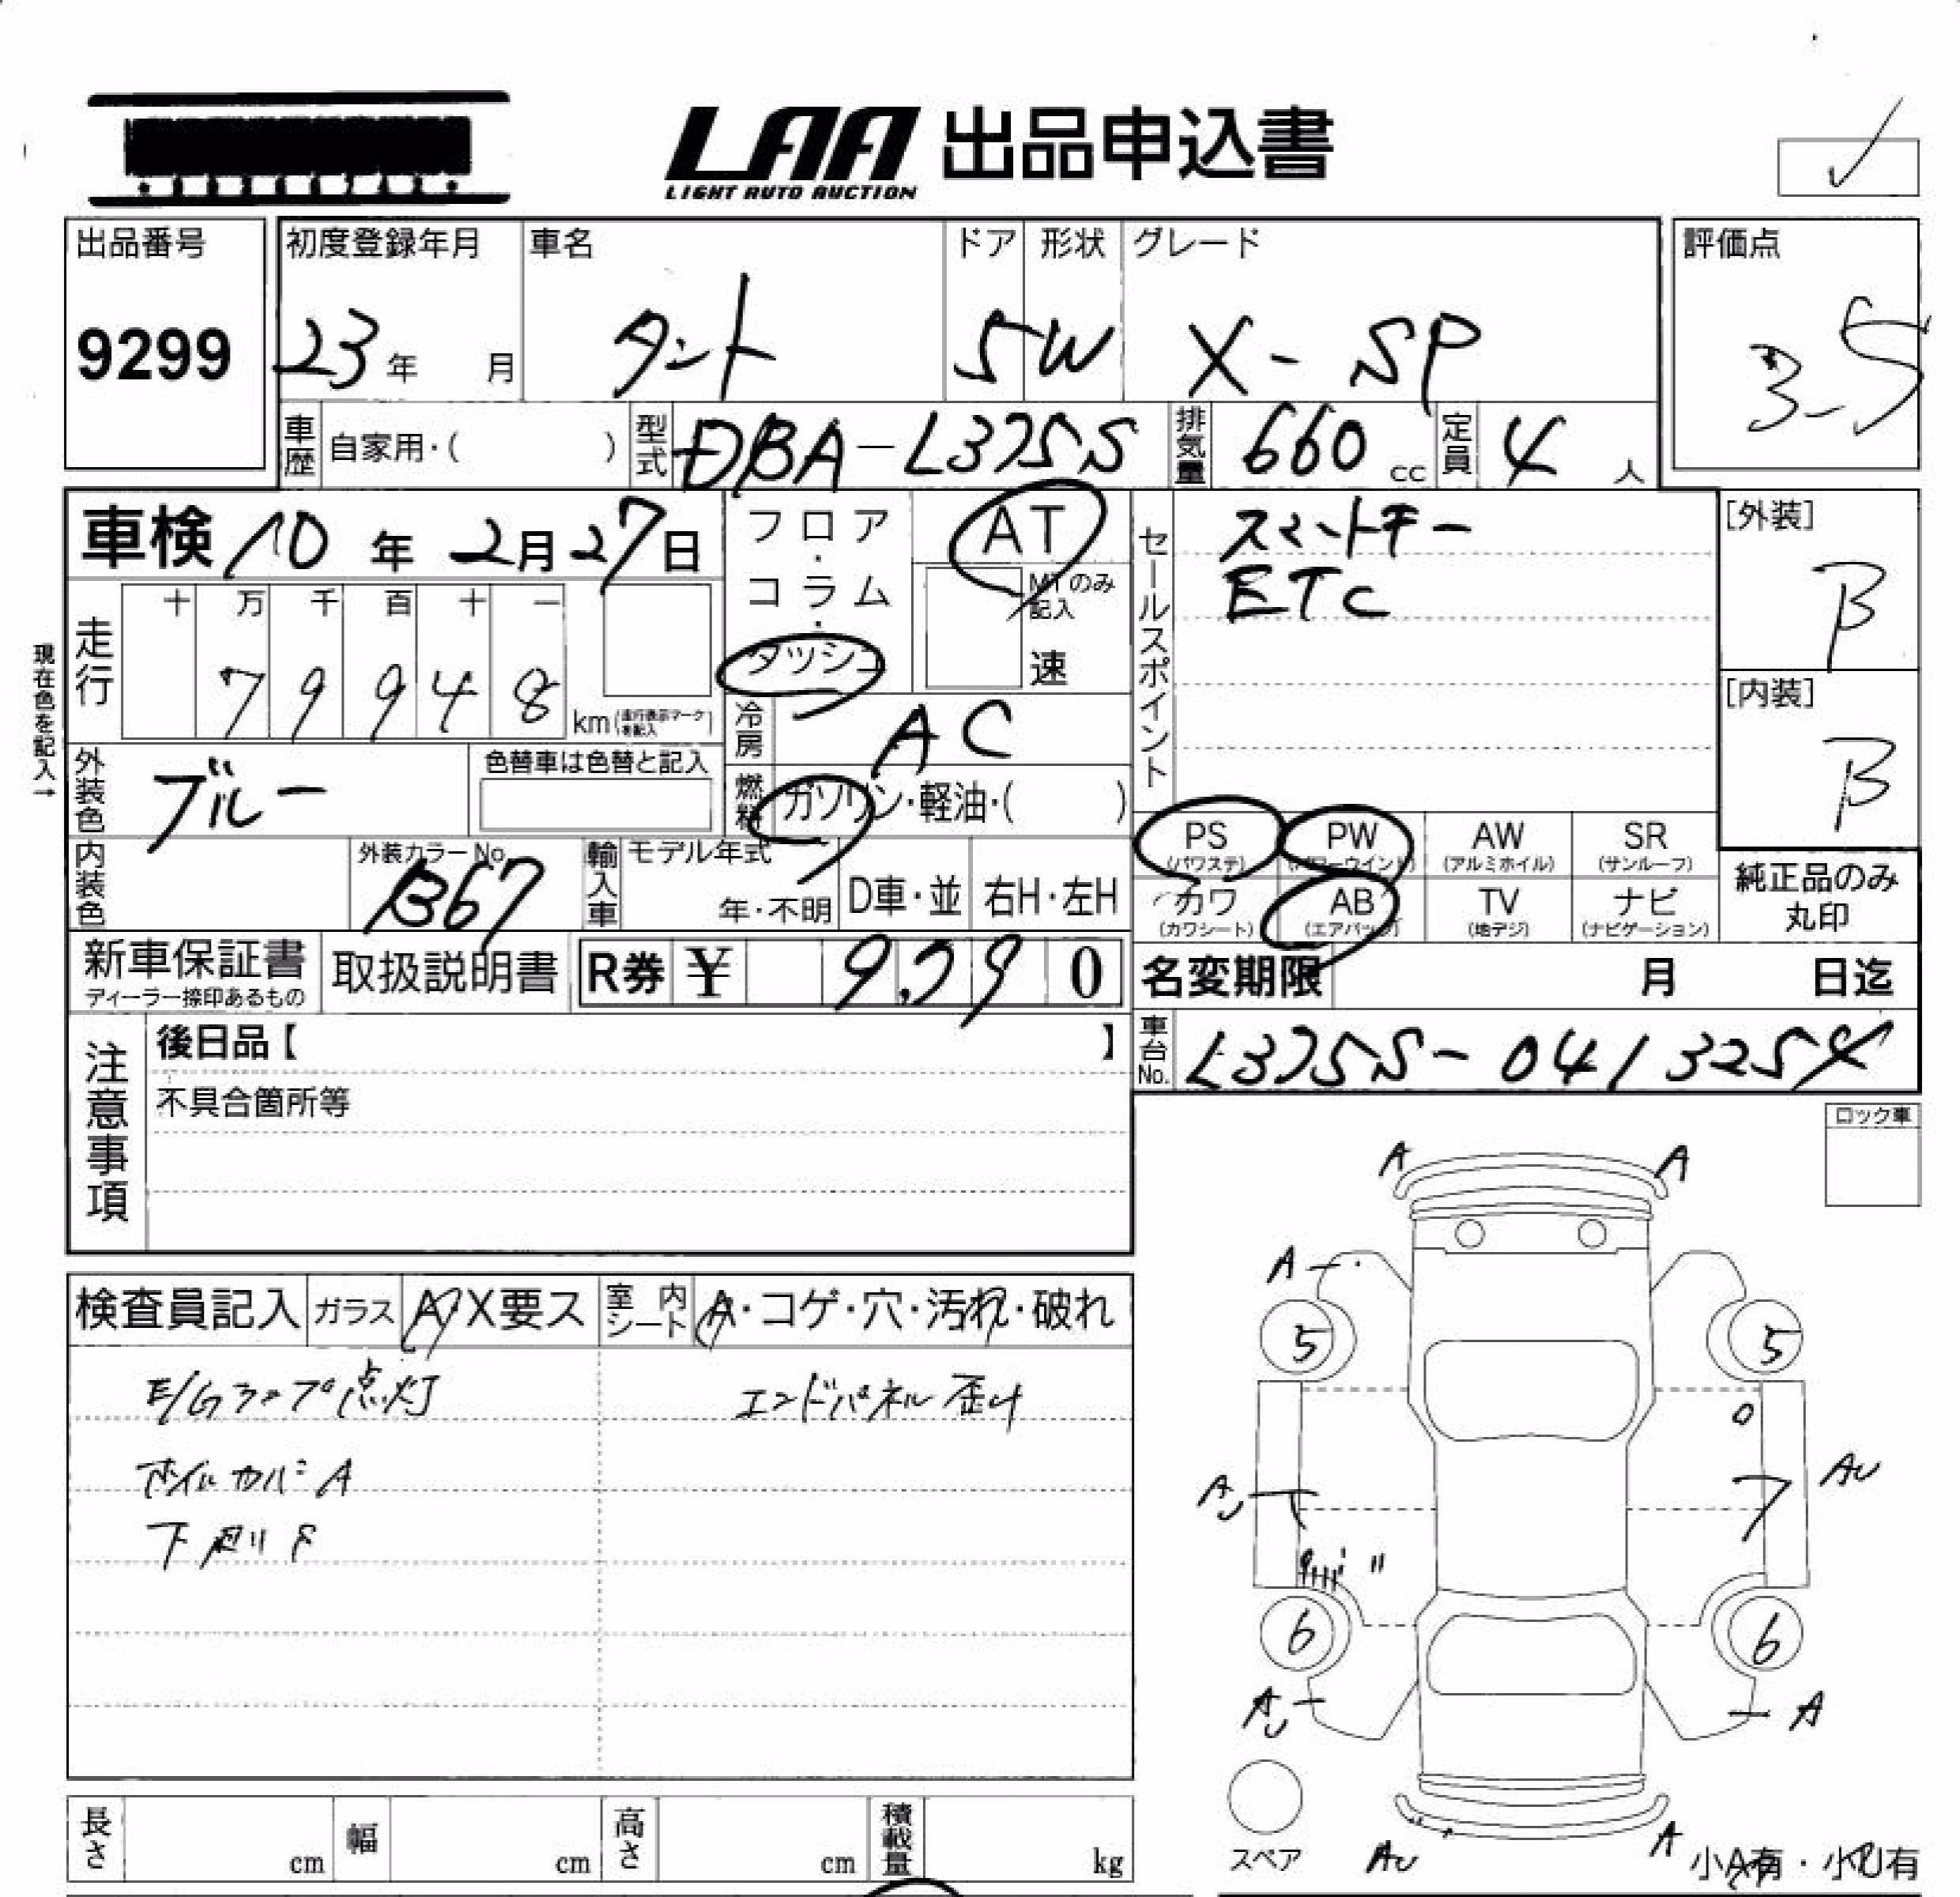 LAA 出品申込書
LIGHT AUTO AUCTION
出品番号
9299
初度登録年月
23年 月
車名
タント
ドア
5
形状
W
グレード
X-SP
評価点
3.5
車歴 自家用・( )
型式 DBA-L375S
排気量 660 cc
定員 4 人
車検 10年 2月27日
フロア・コラム・ダッシュ
AT
MTのみ記入
速
セールスポイント
スマートキー
ETC
[外装]
B
[内装]
B
現在色を記入→
走行
十 万 千 百 十 一
7 9 9 4 8
km(走行表示マークを記入)
冷房 AC
外装色 ブルー
色替車は色替と記入
燃料 ガソリン・軽油・( )
内装色
外装カラーNo.
B67
輸入車
モデル年式
年・不明
D車・並
右H・左H
PS
(パワステ)
PW
(パワーウインド)
AW
(アルミホイル)
SR
(サンルーフ)
カワ
(カワシート)
AB
(エアバッグ)
TV
(地デジ)
ナビ
(ナビゲーション)
純正品のみ
丸印
新車保証書
ディーラー捺印あるもの
取扱説明書
R券 ¥ 9,790
名変期限 月 日迄
車台No. L375S-0413254
注意事項
後日品【 】
不具合箇所等
ロック車
検査員記入
ガラス A・X要ス
室内シート A・コゲ・穴・汚れ・破れ
E/Gランプ点灯
エンドパネル歪み
ホイルカバーA
下廻りS
A A
A
5 5
AU
AU
6 6
AU A
スペア
AU
A
小A有・小U有
長さ cm
幅 cm
高さ cm
積載量 kg